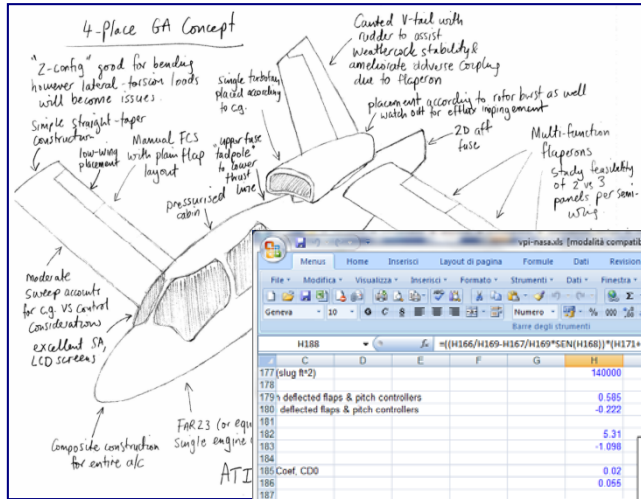 4-place GA Concept
"Z-config" good for bending
however lateral-torsion loads
will become issues.
Simple straight-taper
construction
low-wing
placement
Manual FCS
with plain flap
layout
single turbofan
placed according
to c.g.
Canted V-tail with
rudder to assist
weathercock stability &
ameliorate adverse coupling
due to flaperon
placement according to rotor burst as well
watch out for efflux impingement
"upper fuse
tadpole"
to lower
thrust line
2D aft
fuse
Multi-function
flaperons
study feasibility
of 2 vs 3
panels per semi-
wing
pressurised
cabin
moderate
sweep accounts
for c.g. vs control
considerations
excellent SA,
LCD screens
Composite construction
for entire a/c
FAR23 (or equ
single engine (
ATI
vpi-nasa.xls [modalità compatib
Menus Home Inserisci Layout di pagina Formule Dati Revision
File Modifica Visualizza Inserisci Formato Strumenti Dati Finestra
Geneva 10 G C S Numero % 000
Barre degli strumenti
H188 fx =((H166/H169-H167/H169*SEN(H168))*(H171+
C D E F G H
177 (slug ft^2) 140000
178
179 deflected flaps & pitch controllers 0.585
180 deflected flaps & pitch controllers -0.222
181
182 5.31
183 -1.098
184
185 Coef, CD0 0.02
186 0.055
187